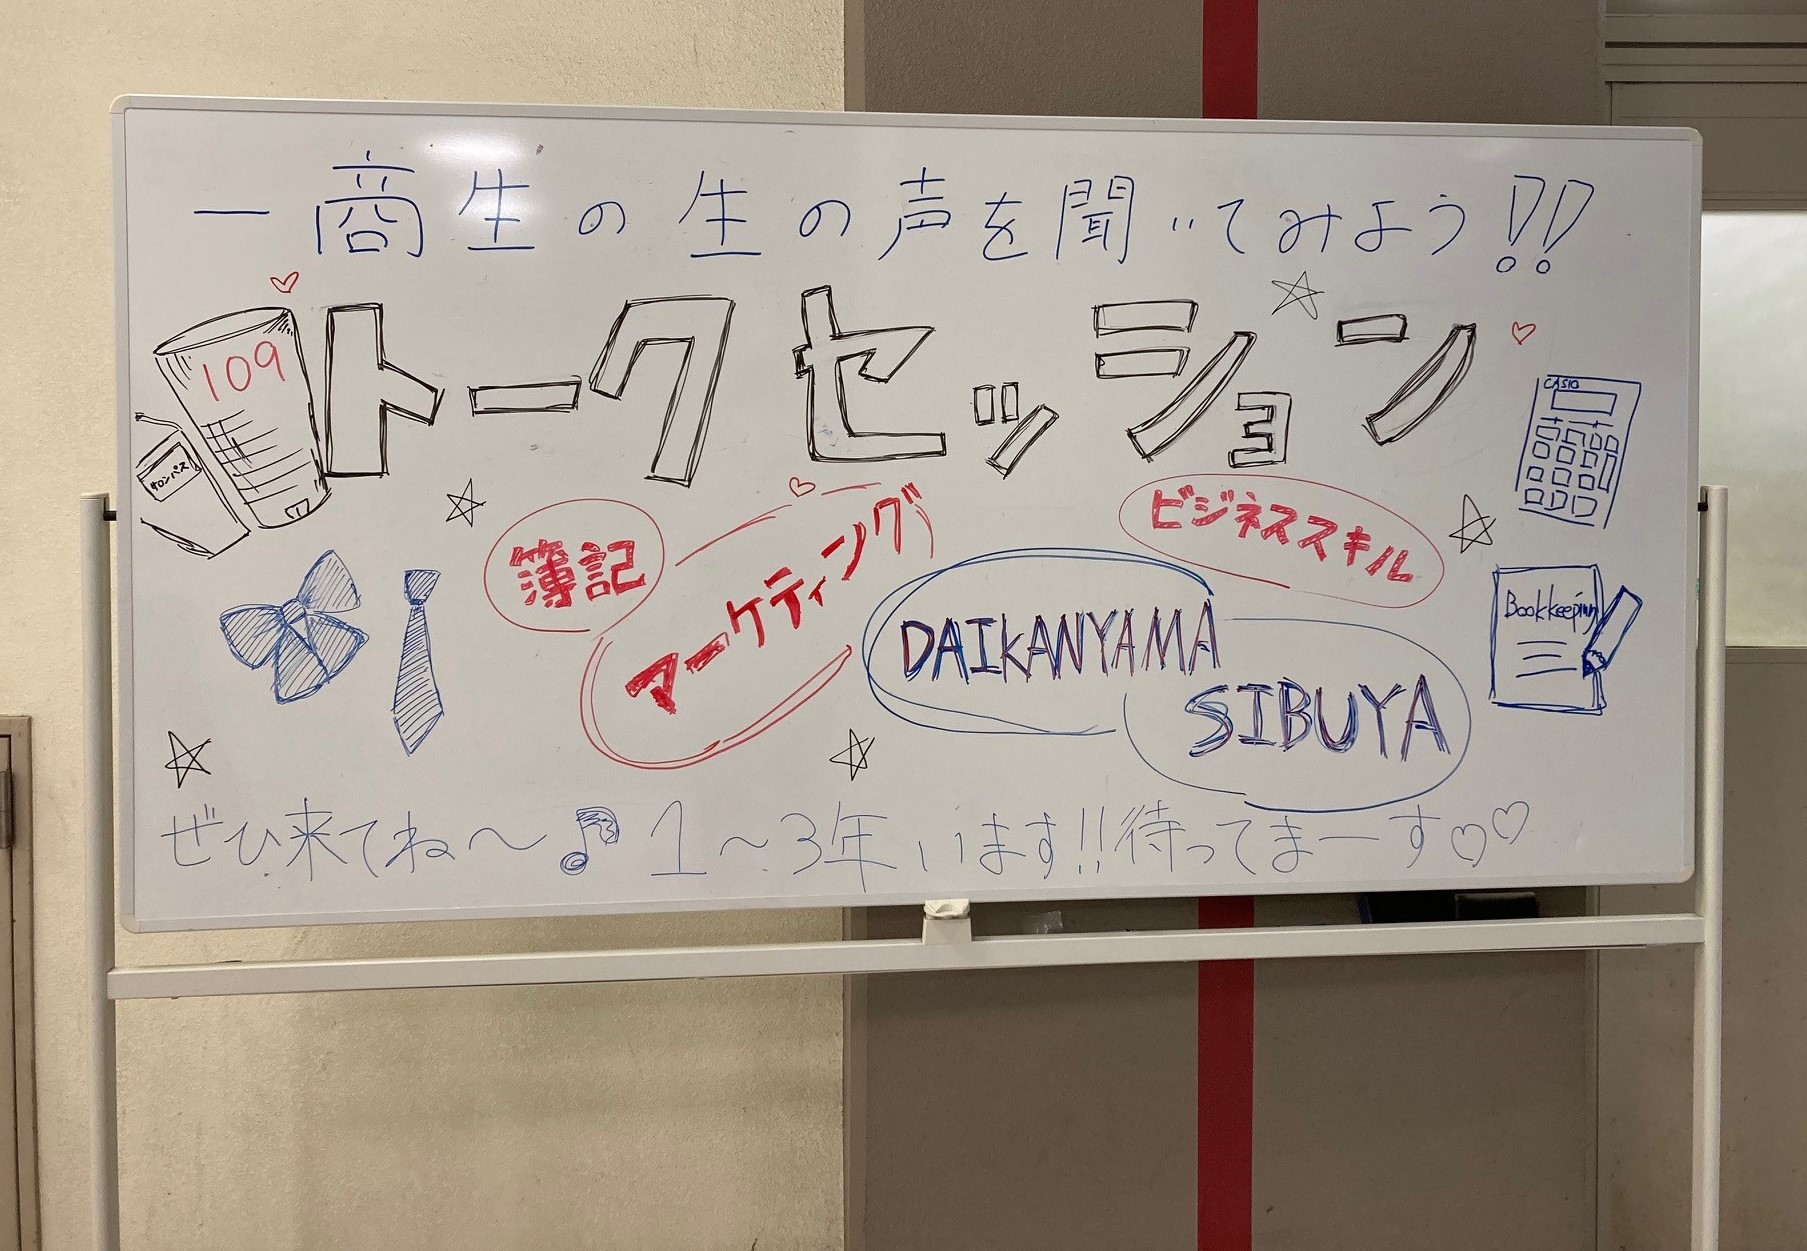 一商生の生の声を聞いてみよう!!
109
トークセッション
CASIO
簿記
マーケティング
ビジネススキル
DAIKANYAMA
SIBUYA
Bookkeeping
ぜひ来てね〜♪1〜3年います!!待ってまーす♡♡